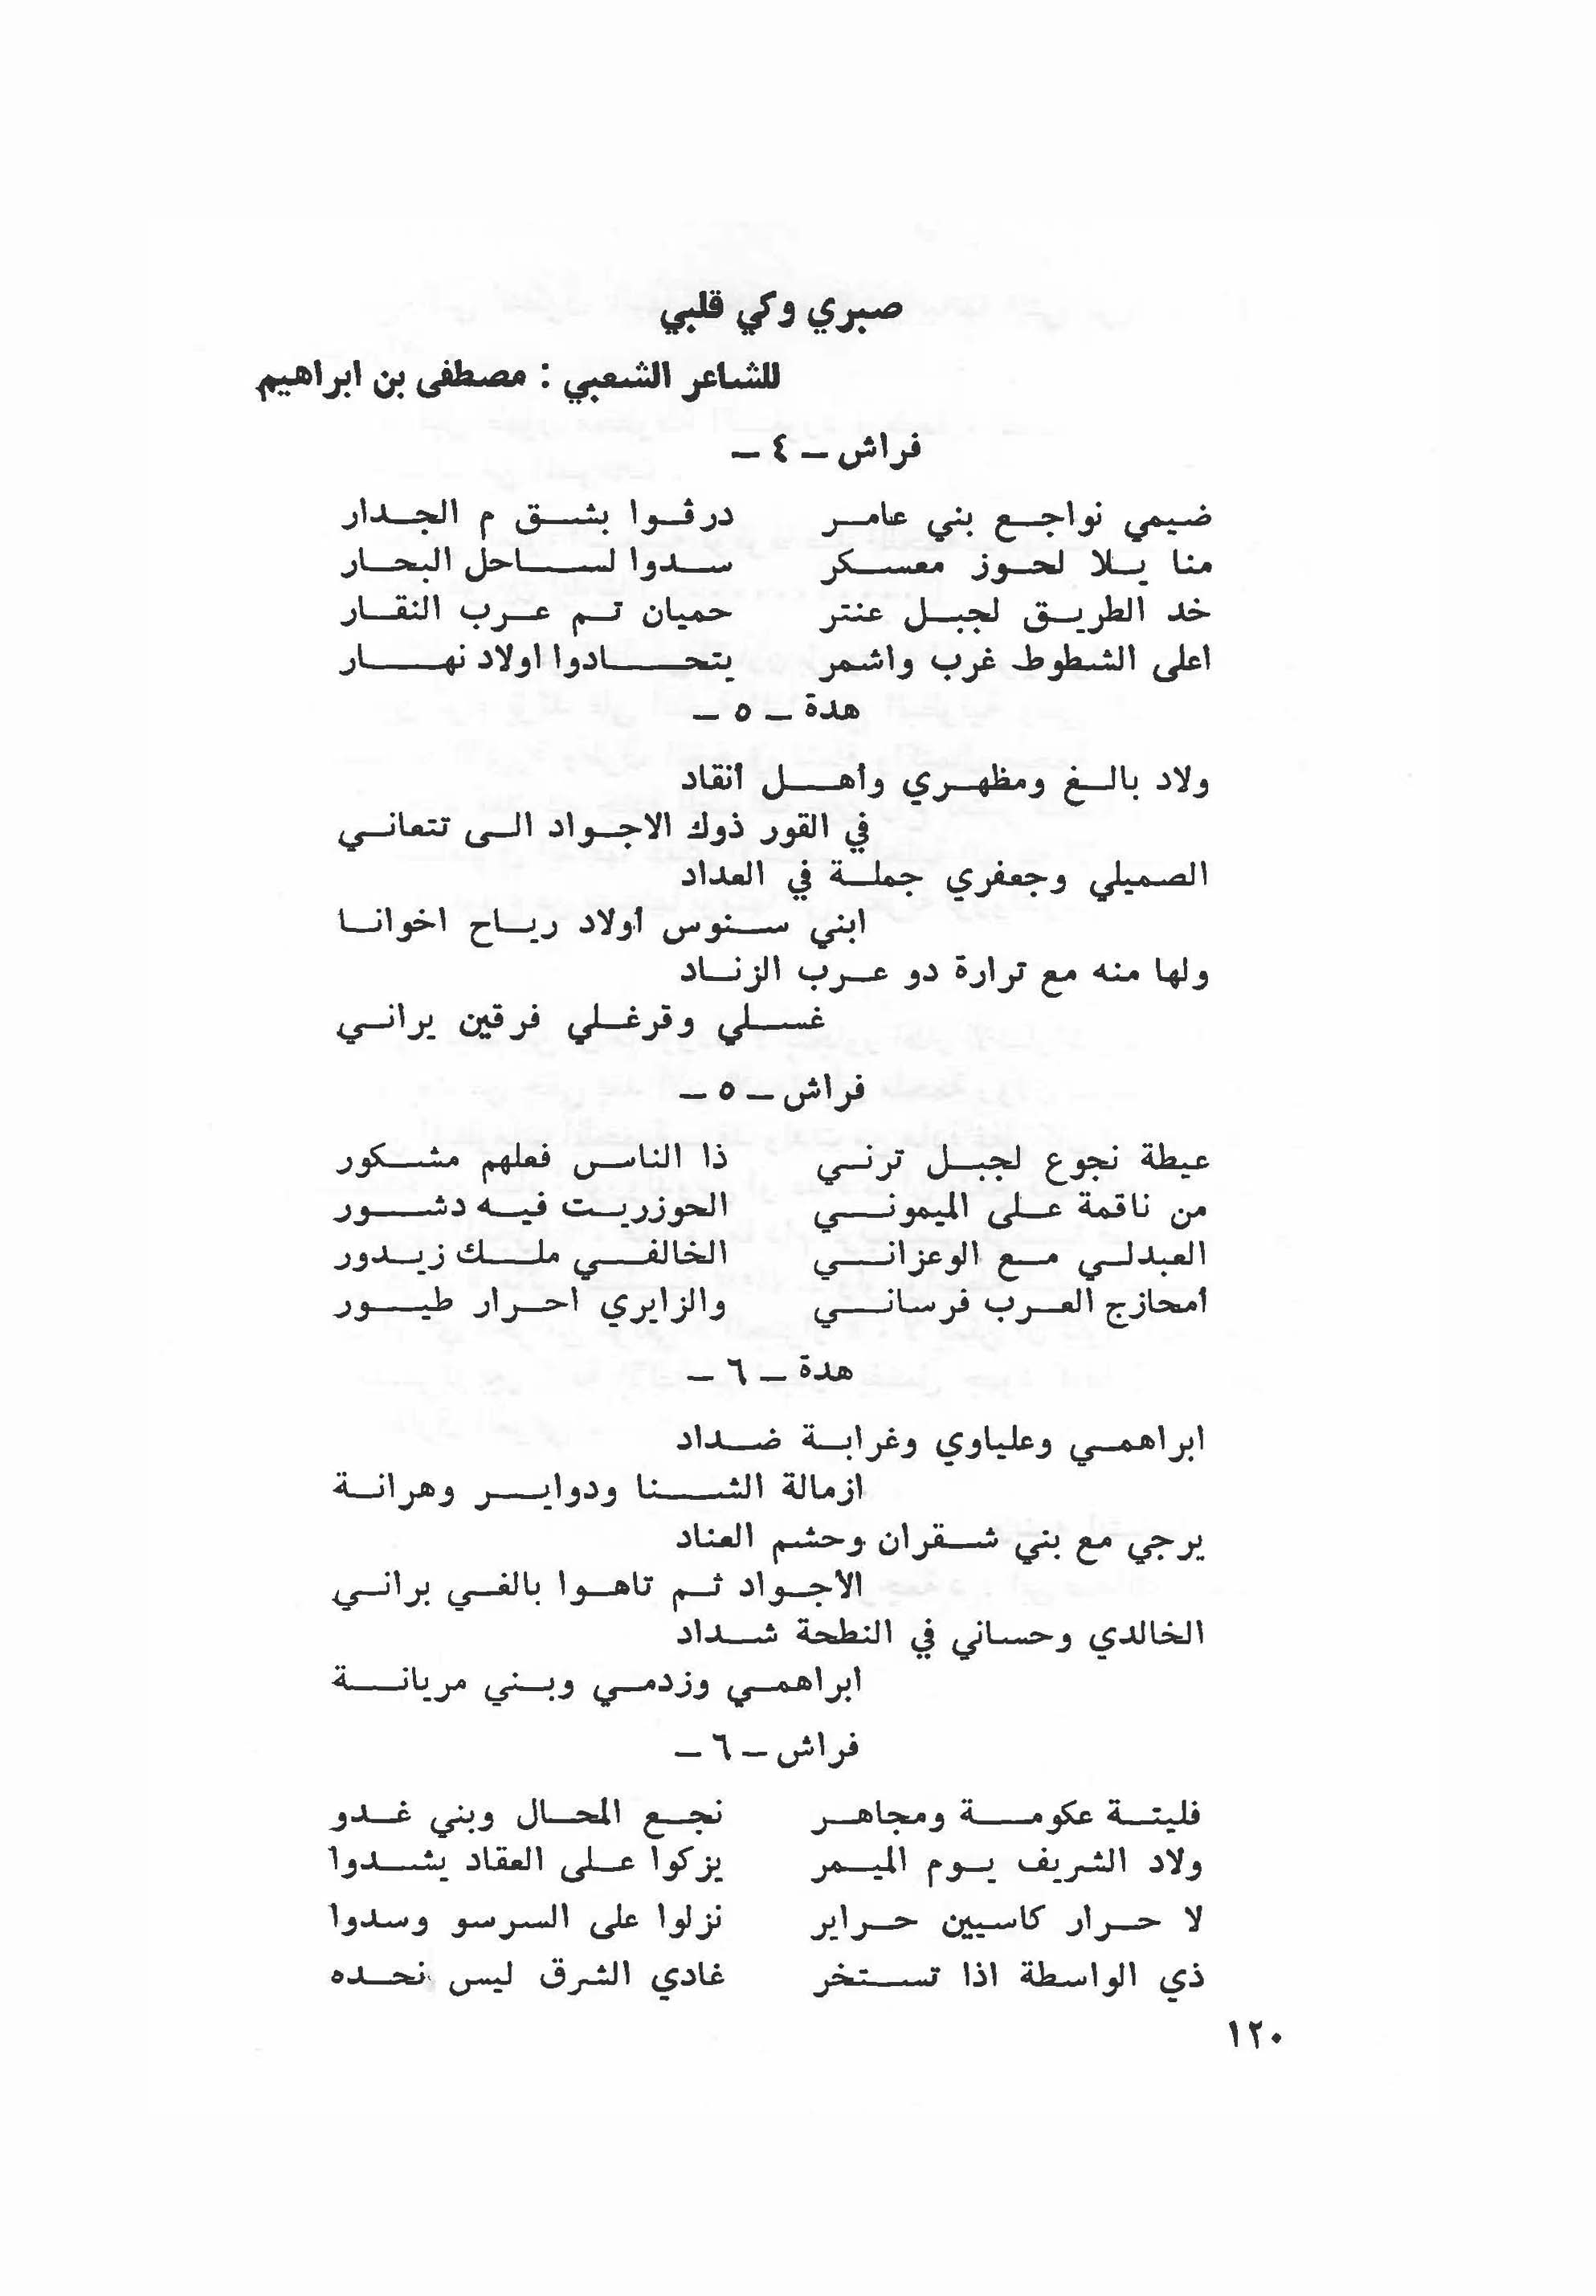 صبري وكي قلبي
للشاعر الشعبي : مصطفى بن ابراهيم
فراش – ٤ –
ضيمي نواجع بني عامر درڤوا بشق م الجدار
منا يلا لحوز معسكر سدوا لساحل البحار
خد الطريق لجبل عنتر حميان تم عرب النقار
اعلى الشطوط غرب واشمر يتحادوا اولاد نهار
هدة – ٥ –
ولاد بالغ ومظهري وأهل أنقاد
في القور ذوك الاجواد الى تتعاني
الصميلي وجعفري جملة في العداد
ابني سنوس أولاد رياح اخوانا
ولها منه مع ترارة دو عرب الزناد
غسلي وقرغلي فرقين يراني
فراش – ٥ –
عيطة نجوع لجبل ترني ذا الناس فعلهم مشكور
من ناقمة على الميموني الحوزريت فيه دشور
العبدلي مع الوعزاني الخالفي ملك زيدور
أمحازج العرب فرساني والزايري احرار طيور
هدة – ٦ –
ابراهمي وعلياوي وغرابة ضداد
ازمالة الشنا ودواير وهرانة
يرجي مع بني شقران وحشم العناد
الاجواد ثم تاهوا بالفي براني
الخالدي وحساني في النطحة شداد
ابراهمي وزدمي وبني مريانة
فراش – ٦ –
فليتة عكومة ومجاهر نجع المحال وبني غدو
ولاد الشريف يوم الميمر يزكوا على العقاد يشدوا
لا حرار كاسيين حراير نزلوا على السرسو وسدوا
ذي الواسطة اذا تستخر غادي الشرق ليس نحده
١٢٠